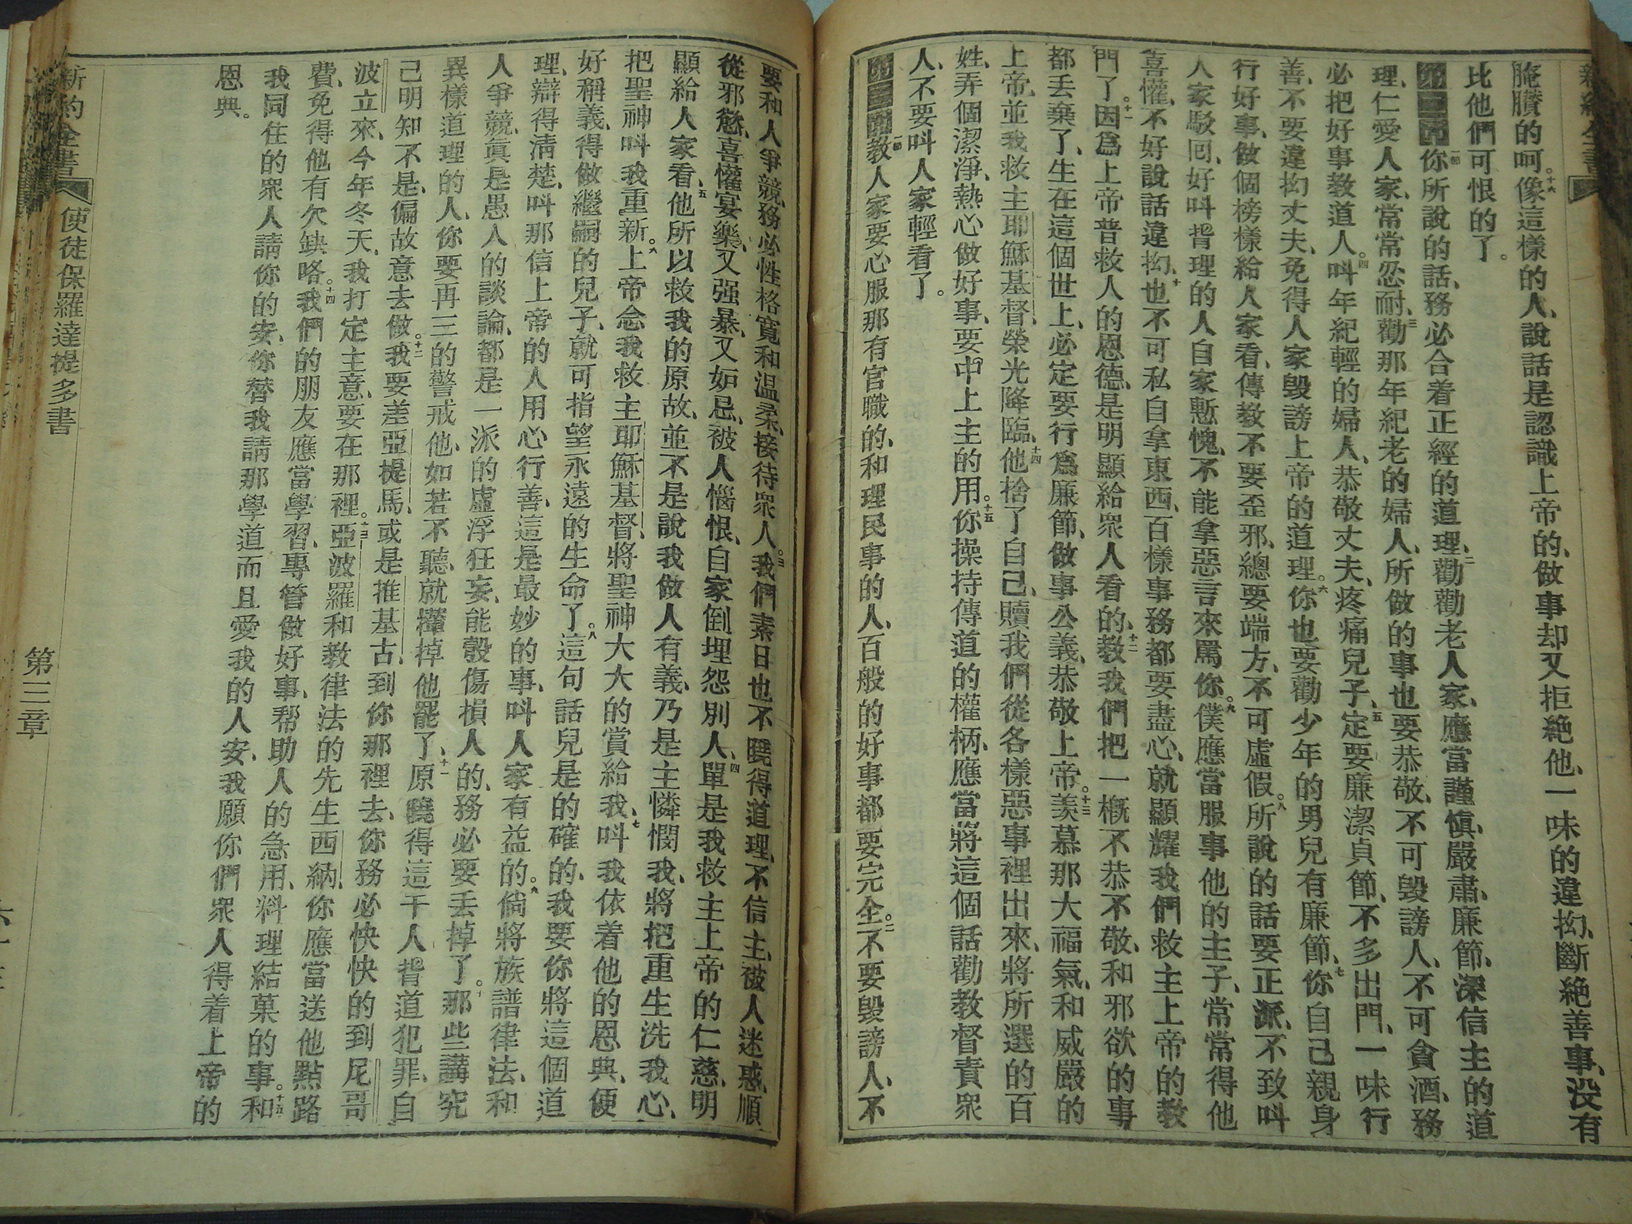 新約全書
腌臢的呵十六像這樣的人、說話是認識上帝的、做事却又拒絕他、一味的違拗、斷絕善事、没有
比他們可恨的了。
第二章一節你所說的話、務必合着正經的道理、二勸勸老人家、應當謹慎、嚴肅、廉節、深信主的道
理、仁愛人家、常常忍耐、三勸那年紀老的婦人、所做的事也要恭敬、不可毀謗人、不可貪酒、務
必把好事教道人。四叫年紀輕的婦人、恭敬丈夫、疼痛兒子、五定要廉潔貞節、不多出門、一味行
善、不要違拗丈夫、免得人家毀謗上帝的道理。六你也要勸少年的男兒有廉節、七你自己親身
行好事、做個榜樣給人家看、傳教不要歪邪、總要端方、不可虛假。八所說的話要正派、不致叫
人家駁回、好叫背理的人自家慙愧、不能拿惡言來罵你。九僕應當服事他的主子、常常得他
喜懽、不好說話違拗、十也不可私自拿東西、百樣事務都要盡心、就顯耀我們救主上帝的教
門了。十一因爲上帝普救人的恩德、是明顯給衆人看的、十二教我們把一槪不恭不敬、和邪欲的事
都丢棄了、生在這個世上、必定要行爲廉節、做事公義、恭敬上帝。十三羨慕那大福氣、和威嚴的
上帝、並我救主耶穌基督、榮光降臨、十四他捨了自己、贖我們從各樣惡事裡出來、將所選的百
姓、弄個潔淨、熱心做好事、要中上主的用。十五你操持傳道的權柄、應當將這個話勸教督責衆
人、不要叫人家輕看了。
第三章一節教人家要心服那有官職的、和理民事的人、百般的好事都要完全。二不要毀謗人、不
要和人爭競、務必性格寬和温柔、接待衆人。三我們素日也不曉得道理、不信主、被人迷惑、順
從邪慾、喜懽宴樂、又强暴、又妬忌、被人惱恨、自家倒埋怨別人、四單是我救主上帝的仁慈、明
顯給人家看、五他所以救我的原故、並不是說我做人有義、乃是主憐憫我、將把重生洗我心、
把聖神叫我重新。六上帝念我救主耶穌基督、將聖神大大的賞給我、七叫我依着他的恩典、便
好稱義、得做繼嗣的兒子、就可指望永遠的生命了。八這句話兒是的確的、我要你將這個道
理、辯得清楚、叫那信上帝的人用心行善、這是最妙的事、叫人家有益的。九倘將族譜律法、和
人爭競、眞是愚人的談論、都是一派的虛浮狂妄、能彀傷損人的、務必要丢掉了。十那些講究
異樣道理的人、你要再三的警戒他、如若不聽、就攆掉他罷了、十一原曉得這干人背道犯罪、自
己明知不是、偏故意去做。十二我要差亞提馬、或是推基古、到你那裡去、你務必快快的到尼哥
波立來、今年冬天、我打定主意、要在那裡。十三亞波羅和教律法的先生西納、你應當送他點路
費、免得他有欠缺咯。十四我們的朋友應當學習、專管做好事、帮助人的急用、料理結菓的事。十五和
我同住的衆人請你的安、你替我請那學道而且愛我的人安、我願你們衆人得着上帝的
恩典。
新約全書 使徒保羅達提多書 第三章